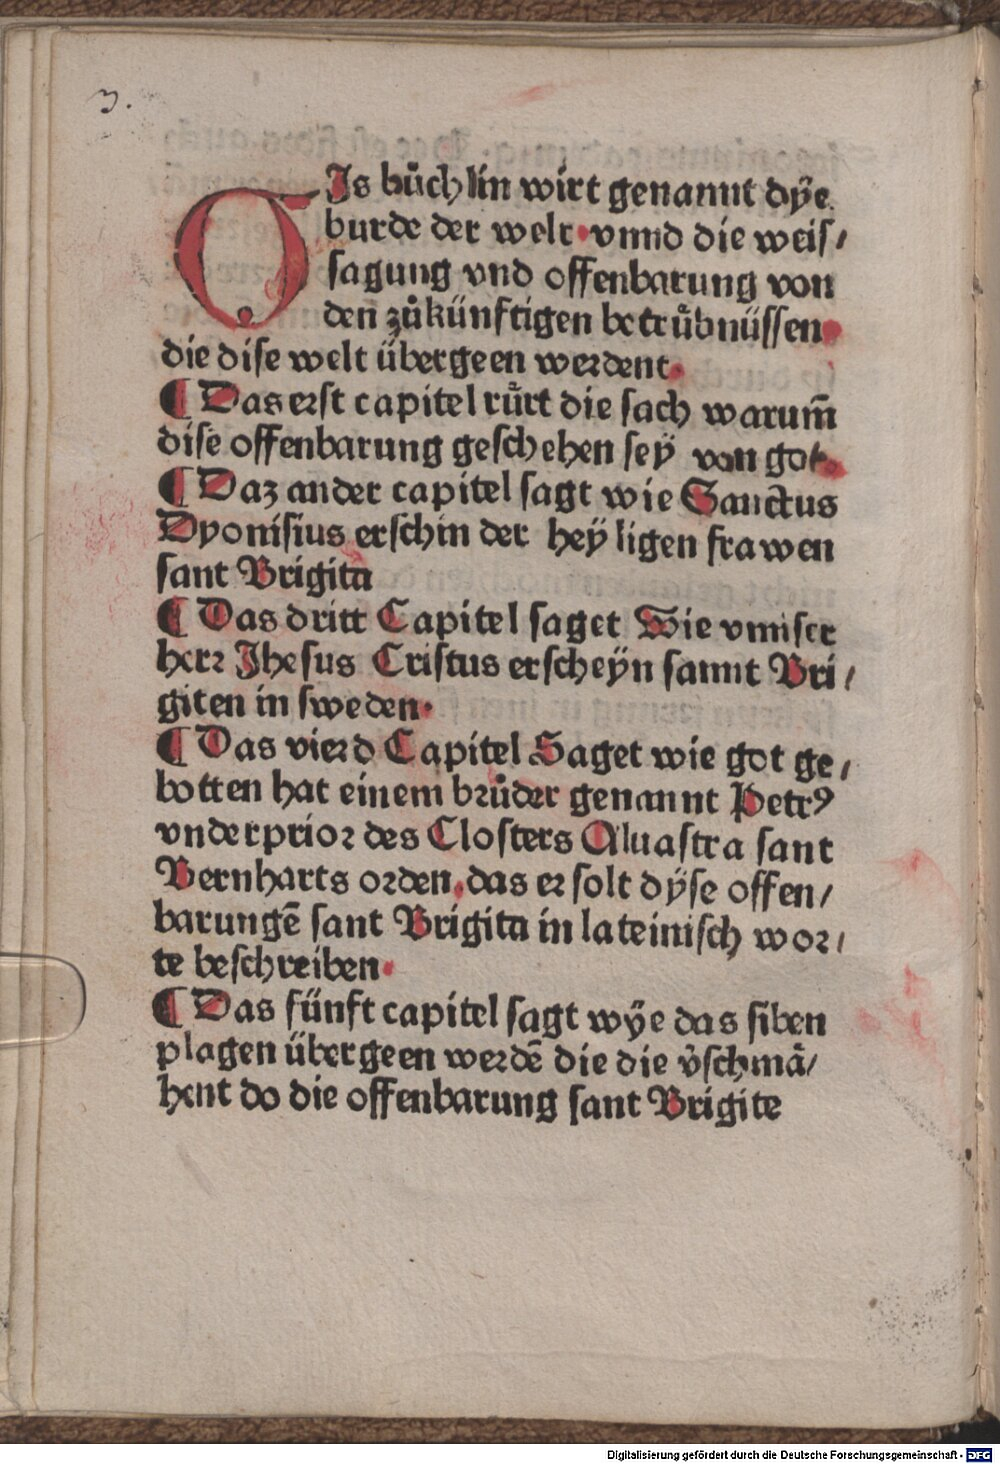 3.
DIs bůchlin wirt genannt dÿe
burde der welt · vnnd die weis/
sagung vnd offenbarung von
den zůkünftigen betrůbnüssen.
die dise welt übergeen werdent.
¶ Das erst capitel růrt die sach warum̄
dise offenbarung geschehen seÿ von got.
¶ Daz ander capitel sagt wie Sanctus
Dyonisius erschin der heÿligen frawen
sant Brigita
¶ Das dritt Capitel saget Wie vnnser
herr Jhesus Cristus erscheÿn sannt Bri/
giten in sweden.
¶ Das vierd Capitel Saget wie got ge/
botten hat einem brůder genannt Petrꝰ
vnderprior des Closters Aluastra sant
Bernharts orden, das er solt dÿse offen/
barungē sant Brigita in lateinisch wor/
te beschreiben.
¶ Das fünft capitel sagt wÿe das siben
plagen übergeen werdē die die v̉schmå/
hent do die offenbarung sant Brigite
Digitalisierung gefördert durch die Deutsche Forschungsgemeinschaft - DFG